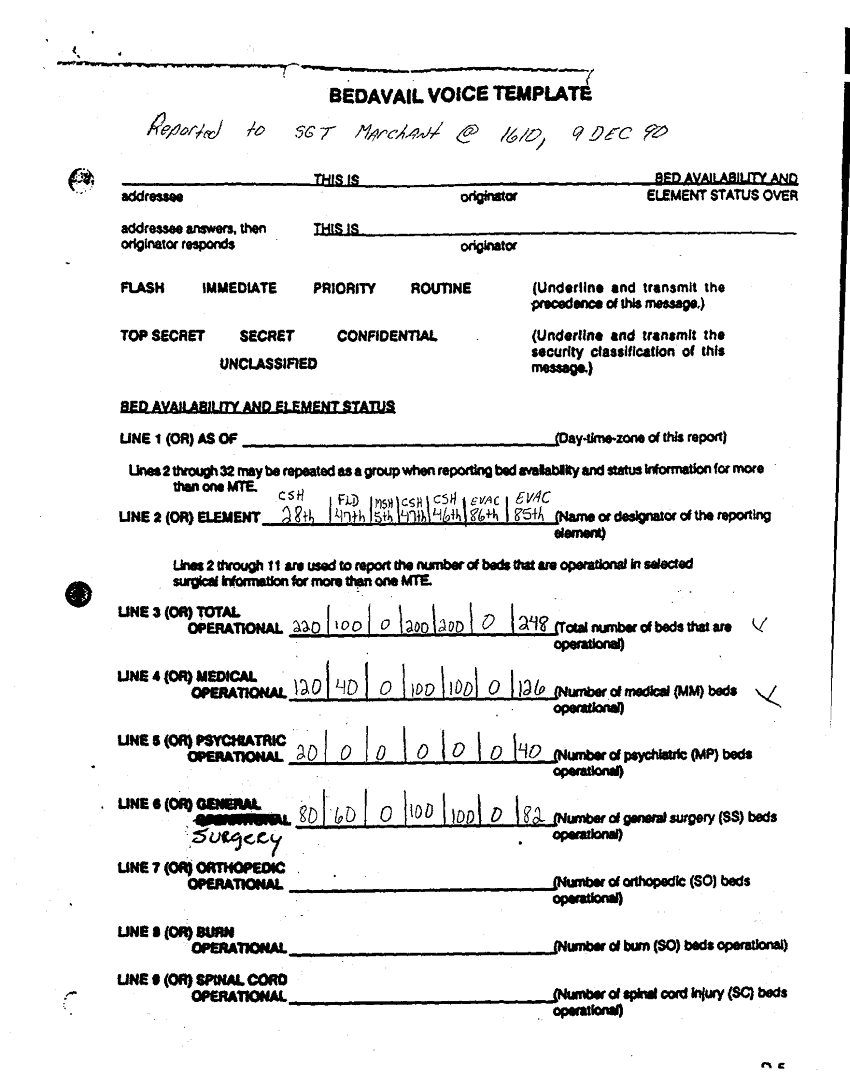 BEDAVAIL VOICE TEMPLATE
Reported to SGT Marchant @ 1610, 9 DEC 90
THIS IS BED AVAILABILITY AND
addressee originator ELEMENT STATUS OVER
addressee answers, then THIS IS
originator responds originator
FLASH IMMEDIATE PRIORITY ROUTINE (Underline and transmit the
precedence of this message.)
TOP SECRET SECRET CONFIDENTIAL (Underline and transmit the
security classification of this
UNCLASSIFIED message.)
BED AVAILABILITY AND ELEMENT STATUS
LINE 1 (OR) AS OF (Day-time-zone of this report)
Lines 2 through 32 may be repeated as a group when reporting bed availability and status information for more
than one MTE.
CSH FLD MSH CSH CSH EVAC EVAC
LINE 2 (OR) ELEMENT 28th 47th 5th 47th 46th 86th 85th (Name or designator of the reporting
element)
Lines 2 through 11 are used to report the number of beds that are operational in selected
surgical information for more than one MTE.
LINE 3 (OR) TOTAL
OPERATIONAL 220 100 0 200 200 0 248 (Total number of beds that are
operational)
LINE 4 (OR) MEDICAL
OPERATIONAL 120 40 0 100 100 0 126 (Number of medical (MM) beds
operational)
LINE 5 (OR) PSYCHIATRIC
OPERATIONAL 20 0 0 0 0 0 40 (Number of psychiatric (MP) beds
operational)
LINE 6 (OR) GENERAL
80 60 0 100 100 0 82 (Number of general surgery (SS) beds
Surgery operational)
LINE 7 (OR) ORTHOPEDIC
OPERATIONAL (Number of orthopedic (SO) beds
operational)
LINE 8 (OR) BURN
OPERATIONAL (Number of burn (SO) beds operational)
LINE 9 (OR) SPINAL CORD
OPERATIONAL (Number of spinal cord injury (SC) beds
operational)